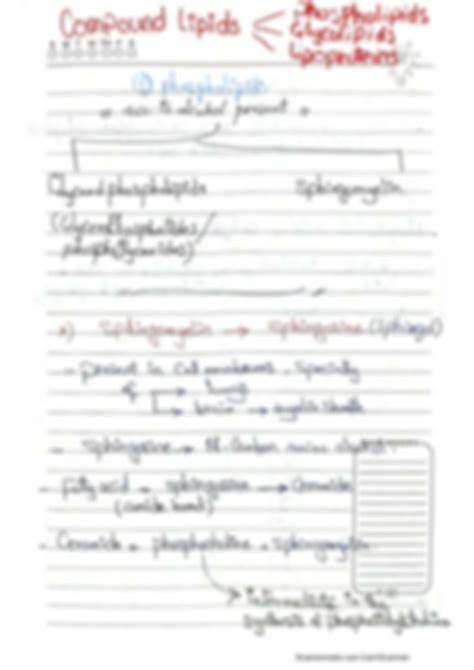 Compound Lipids
phospholipids
Glycolipids
Lipoproteins
① phospholipids
acc. to alcohol present
Glycerophospholipids sphingomyelin
(Glycerophosphatides/
phosphoglycerides)
sphingomyelin → sphingosine (sphingol)
- present in cell membranes specially
of → lung
→ brain → myelin sheath
- sphingosine → 18-Carbon amino alcohol
- fatty acid + sphingosine → Ceramide
(amide bond)
- Ceramide + sphingomyelin
intermediate in the
synthesis of